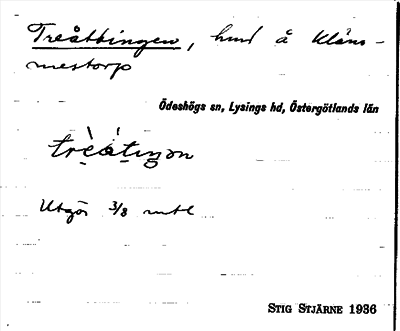 Treåttingen, hmd å Kläms-
mestorp
Ödeshögs sn, Lysings hd, Östergötlands län
Utgör 3/8 mtl
STIG STJÄRNE 1936